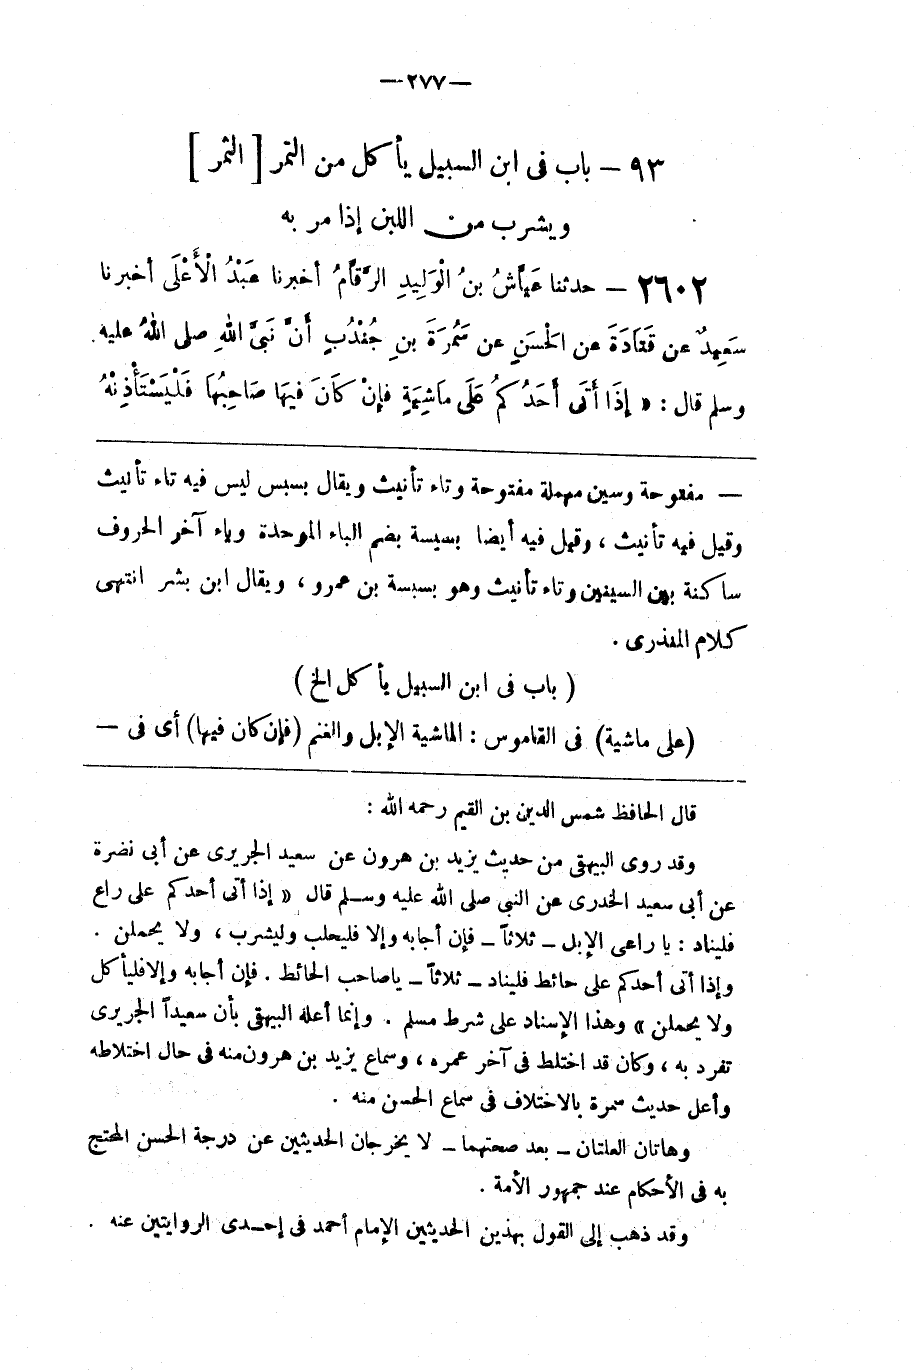 —٢٧٧—
٩٣ – باب فى ابن السبيل يأكل من التمر [ الثمر ]
ويشرب من اللبن إذا مر به
٢٦٠٢ – حدثنا عَيَّاشُ بنُ الْوَلِيدِ الرَّقَّامُ أخبرنا عَبْدُ الْأَعْلَى أخبرنا
سَعِيدٌ عن قَتَادَةَ عن الْحَسَنِ عن سَمُرَةَ بنِ جُنْدُبٍ أَنَّ نَبِىَّ اللهِ صلى اللهُ عليه
وسلم قال : « إذَا أَتَى أَحَدُكُمْ عَلَى مَاشِيَةٍ فإنْ كَانَ فيهَا صَاحِبُهَا فَلْيَسْتَأْذِنْهُ
— مفتوحة وسين مهملة مفتوحة وتاء تأنيث ويقال بسبس ليس فيه تاء تأنيث
وقيل فيه تأنيث ، وقيل فيه أيضا بسيسة بضم الباء الموحدة وياء آخر الحروف
ساكنة بين السينين وتاء تأنيث وهو بسبسة بن عمرو ، ويقال ابن بشر انتهى
كلام المنذرى .
( باب فى ابن السبيل يأكل الخ )
(على ماشية) فى القاموس : الماشية الإبل والغنم (فإن كان فيها) أى فى —
قال الحافظ شمس الدين بن القيم رحمه الله :
وقد روى البيهقى من حديث يزيد بن هرون عن سعيد الجريرى عن أبى نضرة
عن أبى سعيد الخدرى عن النبى صلى الله عليه وسلم قال « إذا أتى أحدكم على راع
فليناد : يا راعى الإبل – ثلاثاً – فإن أجابه وإلا فليحلب وليشرب ، ولا يحملن .
وإذا أتى أحدكم على حائط فليناد – ثلاثاً – ياصاحب الحائط . فإن أجابه وإلا فليأكل
ولا يحملن » وهذا الإسناد على شرط مسلم . وإنما أعله البيهقى بأن سعيداً الجريرى
تفرد به ، وكان قد اختلط فى آخر عمره ، وسماع يزيد بن هرون منه فى حال اختلاطه
وأعل حديث سمرة بالاختلاف فى سماع الحسن منه .
وهاتان العلتان – بعد صحتهما – لا يخرجان الحديثين عن درجة الحسن المحتج
به فى الأحكام عند جمهور الأمة .
وقد ذهب إلى القول بهذين الحديثين الإمام أحمد فى إحدى الروايتين عنه .